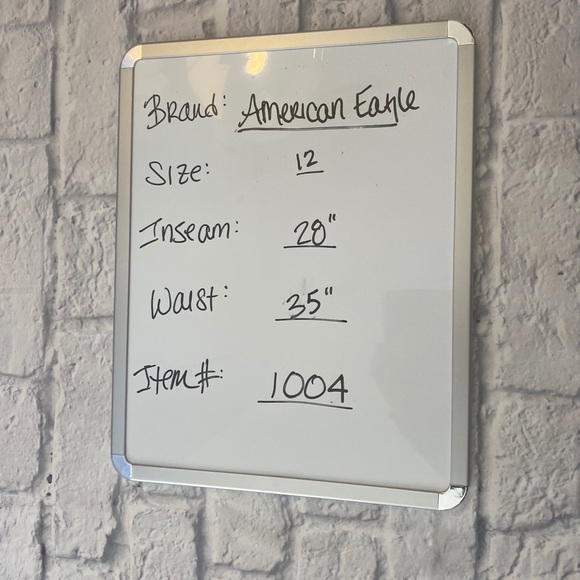 Brand: American Eagle
Size: 12
Inseam: 28"
Waist: 35"
Item #: 1004